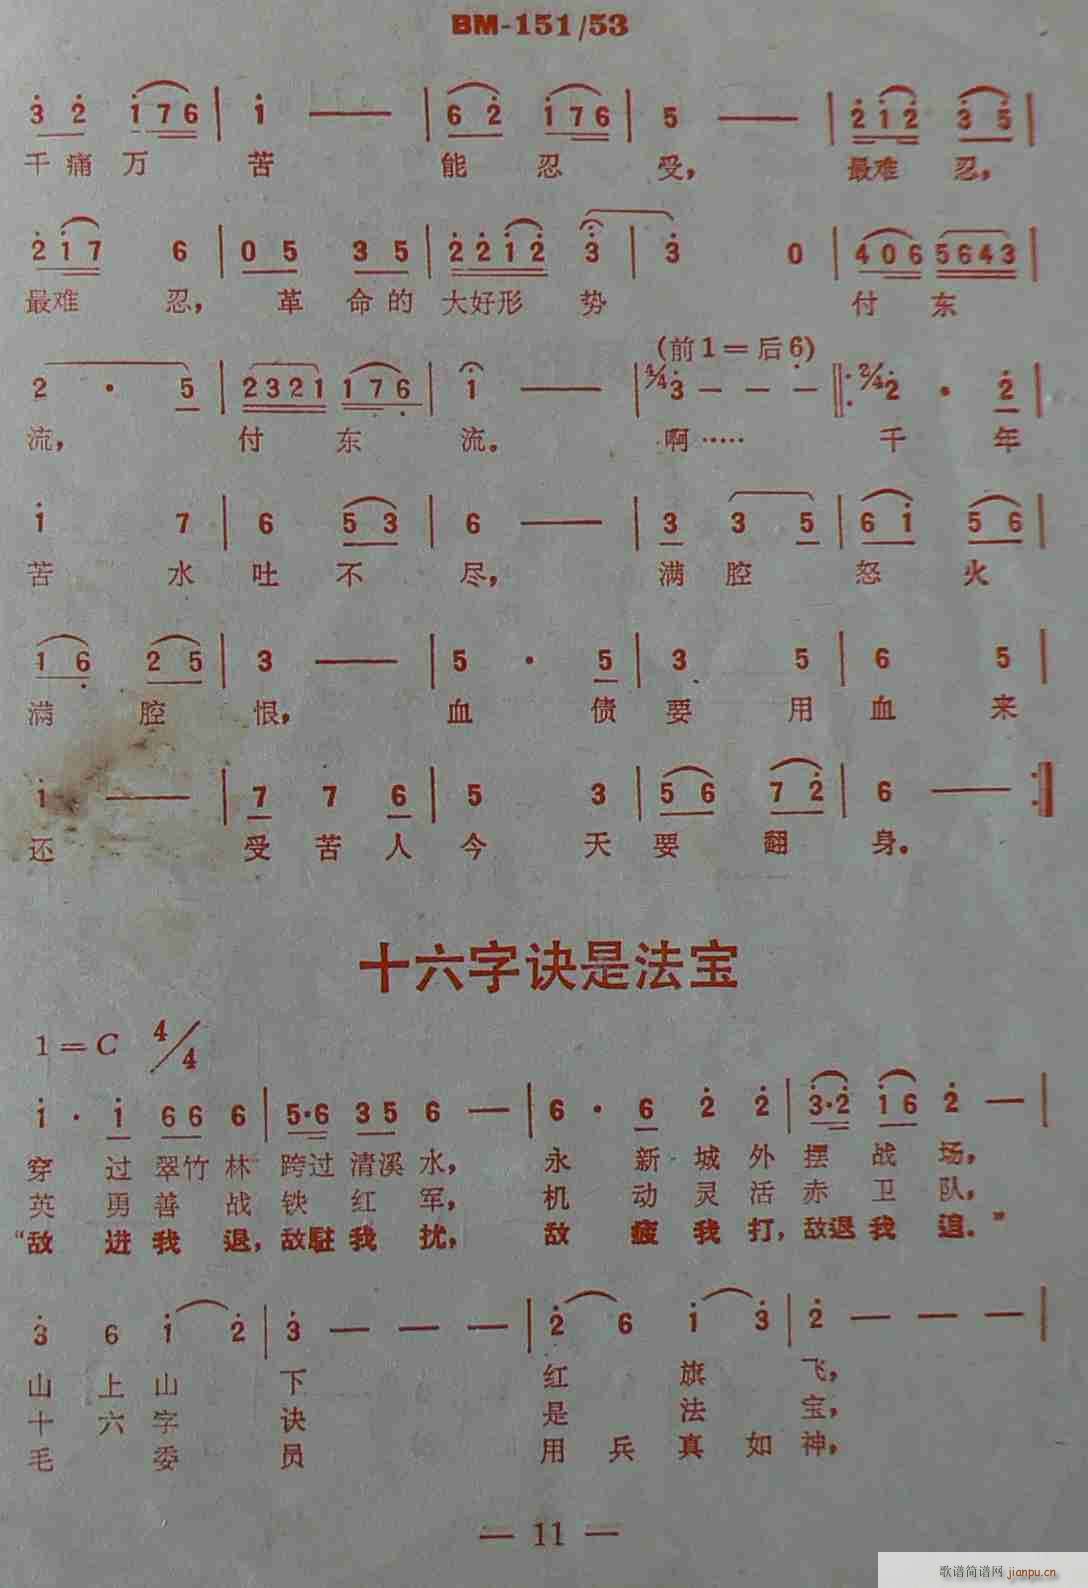 BM-151/53
3 2 1 7 6 | 1 — | 6 2 1 7 6 | 5 — | 2 1 2 3 5 |
千痛万 苦 能 忍 受， 最难 忍，
2 1 7 6 | 0 5 3 5 | 2 2 1 2 3 | 3 0 | 4 0 6 5 6 4 3 |
最难 忍， 革 命的 大好形 势 付 东
(前1=后6)
2 · 5 | 2 3 2 1 1 7 6 | 1 — | 4/4 3 — — — ‖: 2/4 2 · 2 |
流， 付 东 流。 啊…… 千 年
1 7 | 6 5 3 | 6 — | 3 3 5 | 6 1 5 6 |
苦 水 吐 不 尽， 满 腔 怒 火
1 6 2 5 | 3 — | 5 · 5 | 3 5 | 6 5 |
满 腔 恨， 血 债 要 用 血 来
1 — | 7 7 6 | 5 3 | 5 6 7 2 | 6 — :‖
还 受 苦 人 今 天 要 翻 身。
十六字诀是法宝
1=C 4/4
1 · 1 6 6 6 | 5·6 3 5 6 — | 6 · 6 2 2 | 3·2 1 6 2 — |
穿 过 翠竹 林 跨过 清溪 水， 永 新 城 外 摆 战 场，
英 勇 善 战 铁 红 军， 机 动 灵 活 赤 卫 队，
“敌 进 我 退，敌駐 我 扰， 敌 疲 我 打，敌退 我 追。”
3 6 1 2 | 3 — — — | 2 6 1 3 | 2 — — — |
山 上 山 下 红 旗 飞，
十 六 字 诀 是 法 宝，
毛 委 员 用 兵 真 如 神，
— 11 —
歌谱简谱网 jianpu.cn